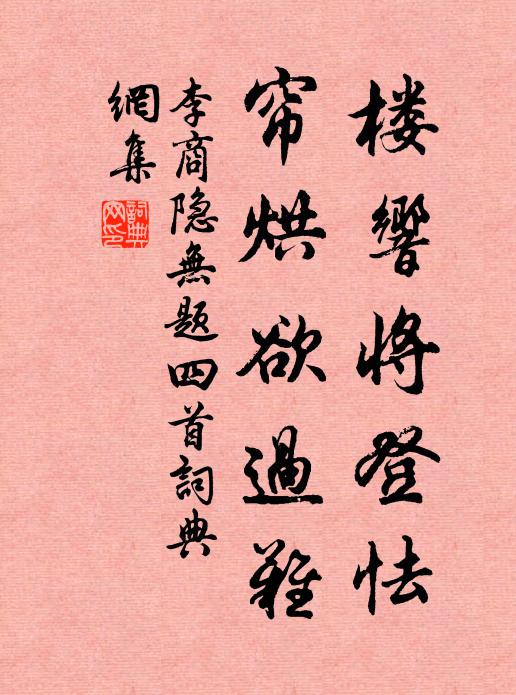 楼響將登怯
帘烘欲過難
李商隐無题四首詞典
網集
詞典
网印